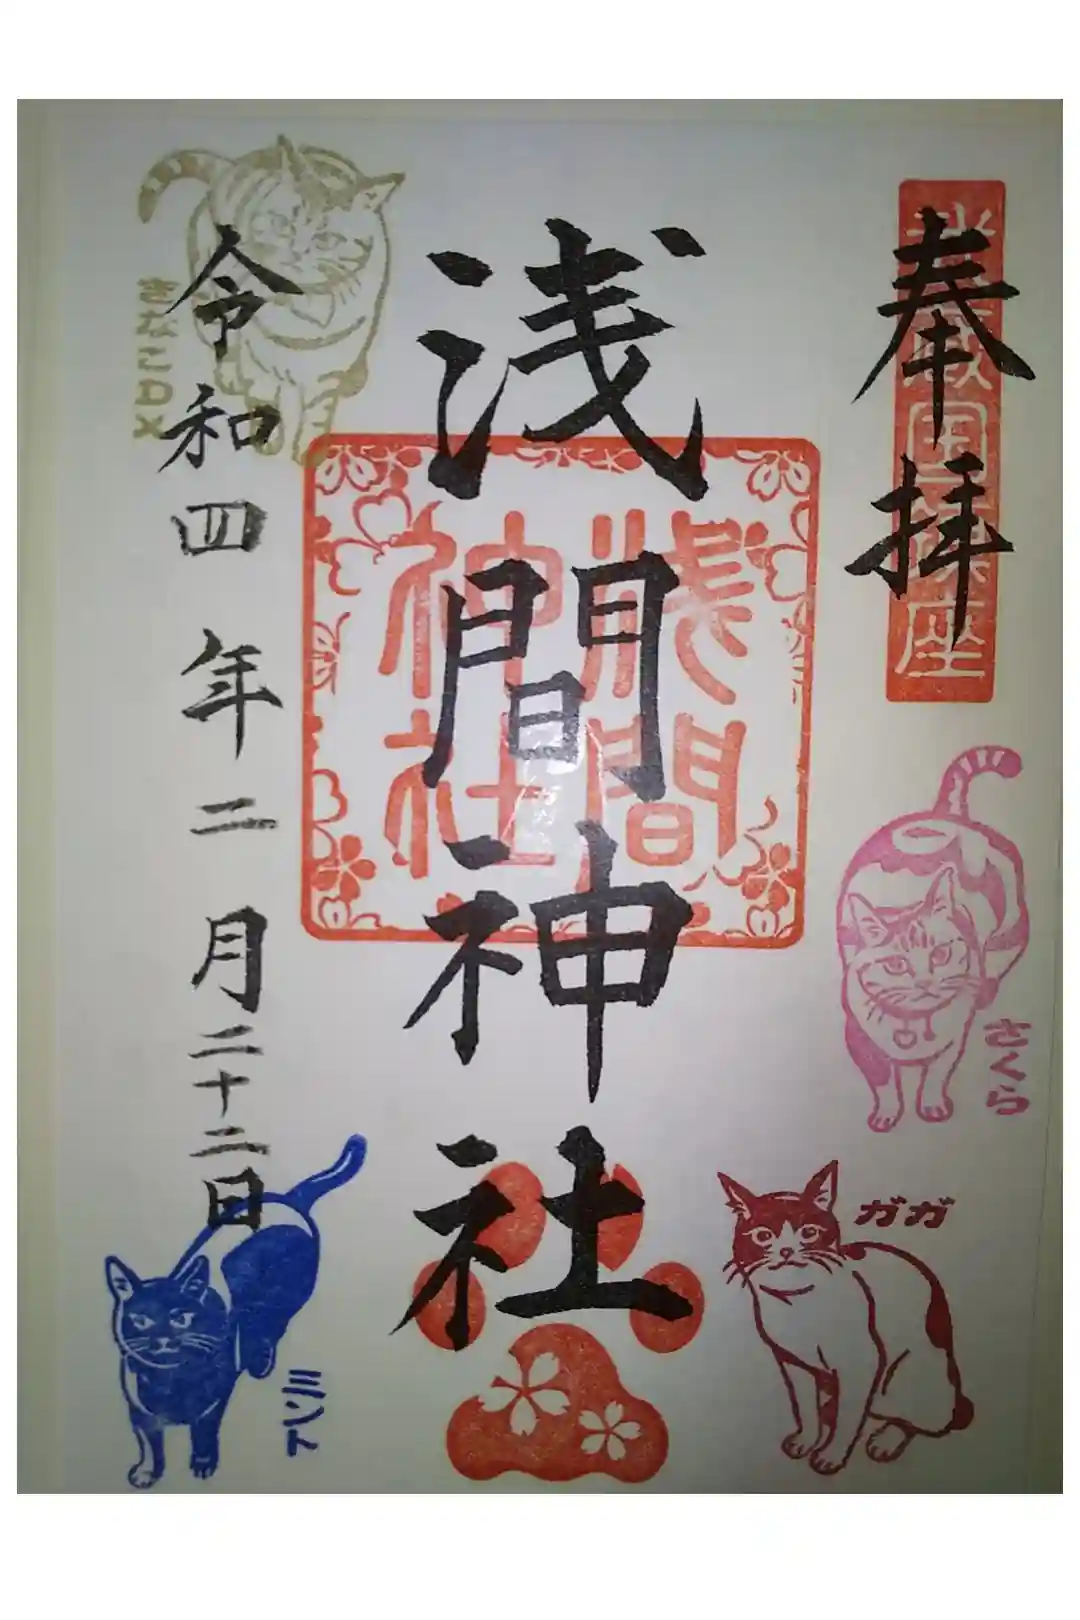 奉拝
国
座
浅間神社
浅間
神社
令和四年二月二十二日
きなこDX
さくら
ガガ
ミント